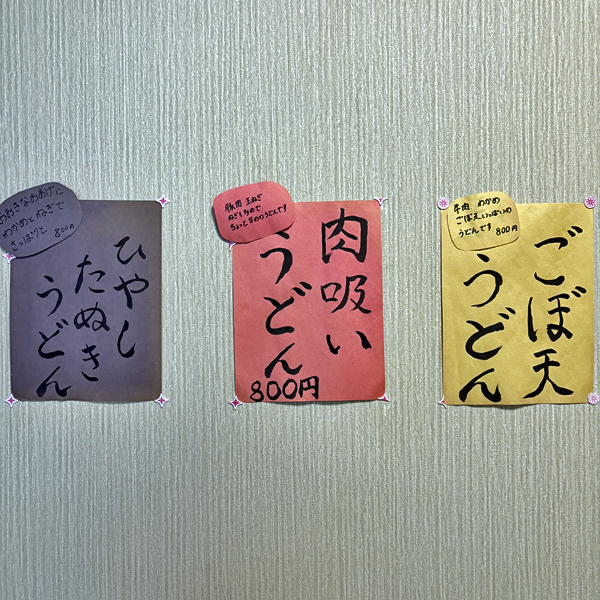 おおきなおあげに
わかめとねぎで
さっぱりと 800円
ひやし
たぬき
うどん
豚肉 玉ねぎ
ねぎも多めで
ちょっと甘めのうどんです
肉吸い
うどん
800円
牛肉 わかめ
ごぼ天いっぱいの
うどんです 800円
ごぼ天
うどん